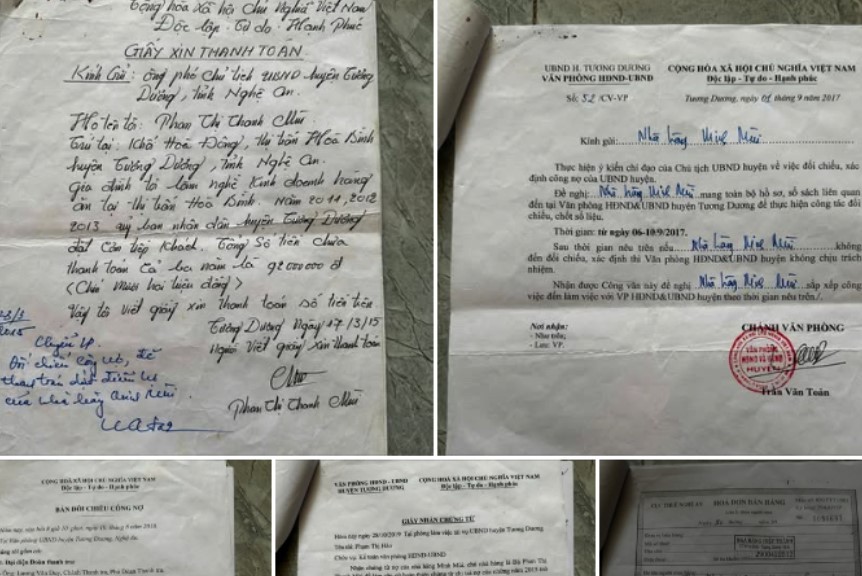 Cộng hòa Xã hội Chủ Nghĩa Việt Nam
Độc lập - Tự do - Hạnh Phúc
GIẤY XIN THANH TOÁN
Kính Gửi: Ông phó Chủ tịch UBND huyện Tương
Dương, tỉnh Nghệ An.
Họ tên tôi: Phan Thị Thanh Mùi
Trú tại: Khối Hoà Đông, thị trấn Hoà Bình
huyện Tương Dương, tỉnh Nghệ An.
gia đình tôi làm nghề Kinh doanh hàng
ăn tại thị trấn Hoà Bình. Năm 2011, 2012
2013 uỷ ban nhân dân huyện Tương Dương
đặt Cơm tiếp Khách. Tổng Số tiền chưa
thanh toán Cả ba năm là 92000000đ
(Chín mươi hai triệu đồng)
Vậy tôi viết giấy xin thanh toán số tiền trên
Tương Dương Ngày 17/3/15
Người Viết giấy xin thanh toán
Phan Thị Thanh Mùi
23/3
2015
Chuyển VP
Đối chiếu Công nợ, để
thanh toán
của nhà hàng Minh Mùi.
UBND H. TƯƠNG DƯƠNG
VĂN PHÒNG HĐND-UBND
Số: 52 /CV-VP
CỘNG HÒA XÃ HỘI CHỦ NGHĨA VIỆT NAM
Độc lập - Tự do - Hạnh phúc
Tương Dương, ngày 01 tháng 9 năm 2017
Kính gửi: Nhà hàng Minh Mùi
Thực hiện ý kiến chỉ đạo của Chủ tịch UBND huyện về việc đối chiếu, xác
định công nợ của UBND huyện.
Đề nghị: Nhà hàng Minh Mùi mang toàn bộ hồ sơ, sổ sách liên quan
đến tại Văn phòng HĐND&UBND huyện Tương Dương để thực hiện công tác đối
chiếu, chốt số liệu.
Thời gian: từ ngày 06-10/9/2017.
Sau thời gian nêu trên nếu Nhà hàng Minh Mùi không
đến đối chiếu, xác định thì Văn phòng HĐND&UBND huyện không chịu trách
nhiệm.
Nhận được Công văn này đề nghị Nhà hàng Minh Mùi sắp xếp công
việc đến làm việc với VP HĐND&UBND huyện theo thời gian nêu trên./.
Nơi nhận:
- Như trên;
- Lưu: VP.
CHÁNH VĂN PHÒNG
VĂN PHÒNG
HĐND VÀ UBND
HUYỆN
Trần Văn Toàn
CỘNG HÒA XÃ HỘI CHỦ NGHĨA VIỆT NAM
Độc lập - Tự do - Hạnh phúc
BẢN ĐỐI CHIẾU CÔNG NỢ
Tại Văn phòng UBND huyện Tương Dương, Nghệ An.
Đại diện Đoàn thanh tra
VĂN PHÒNG HĐND - UBND
HUYỆN TƯƠNG DƯƠNG
CỘNG HÒA XÃ HỘI CHỦ NGHĨA VIỆT NAM
Độc lập - Tự do - Hạnh phúc
GIẤY NHẬN CHỨNG TỪ
Hôm nay ngày 28/10/2019 Tại phòng làm việc tài vụ UBND huyện Tương Dương
Tên tôi: Phạm Thị Hảo
Chức vụ: Kế toán văn phòng HĐND-UBND
HOÁ ĐƠN BÁN HÀNG